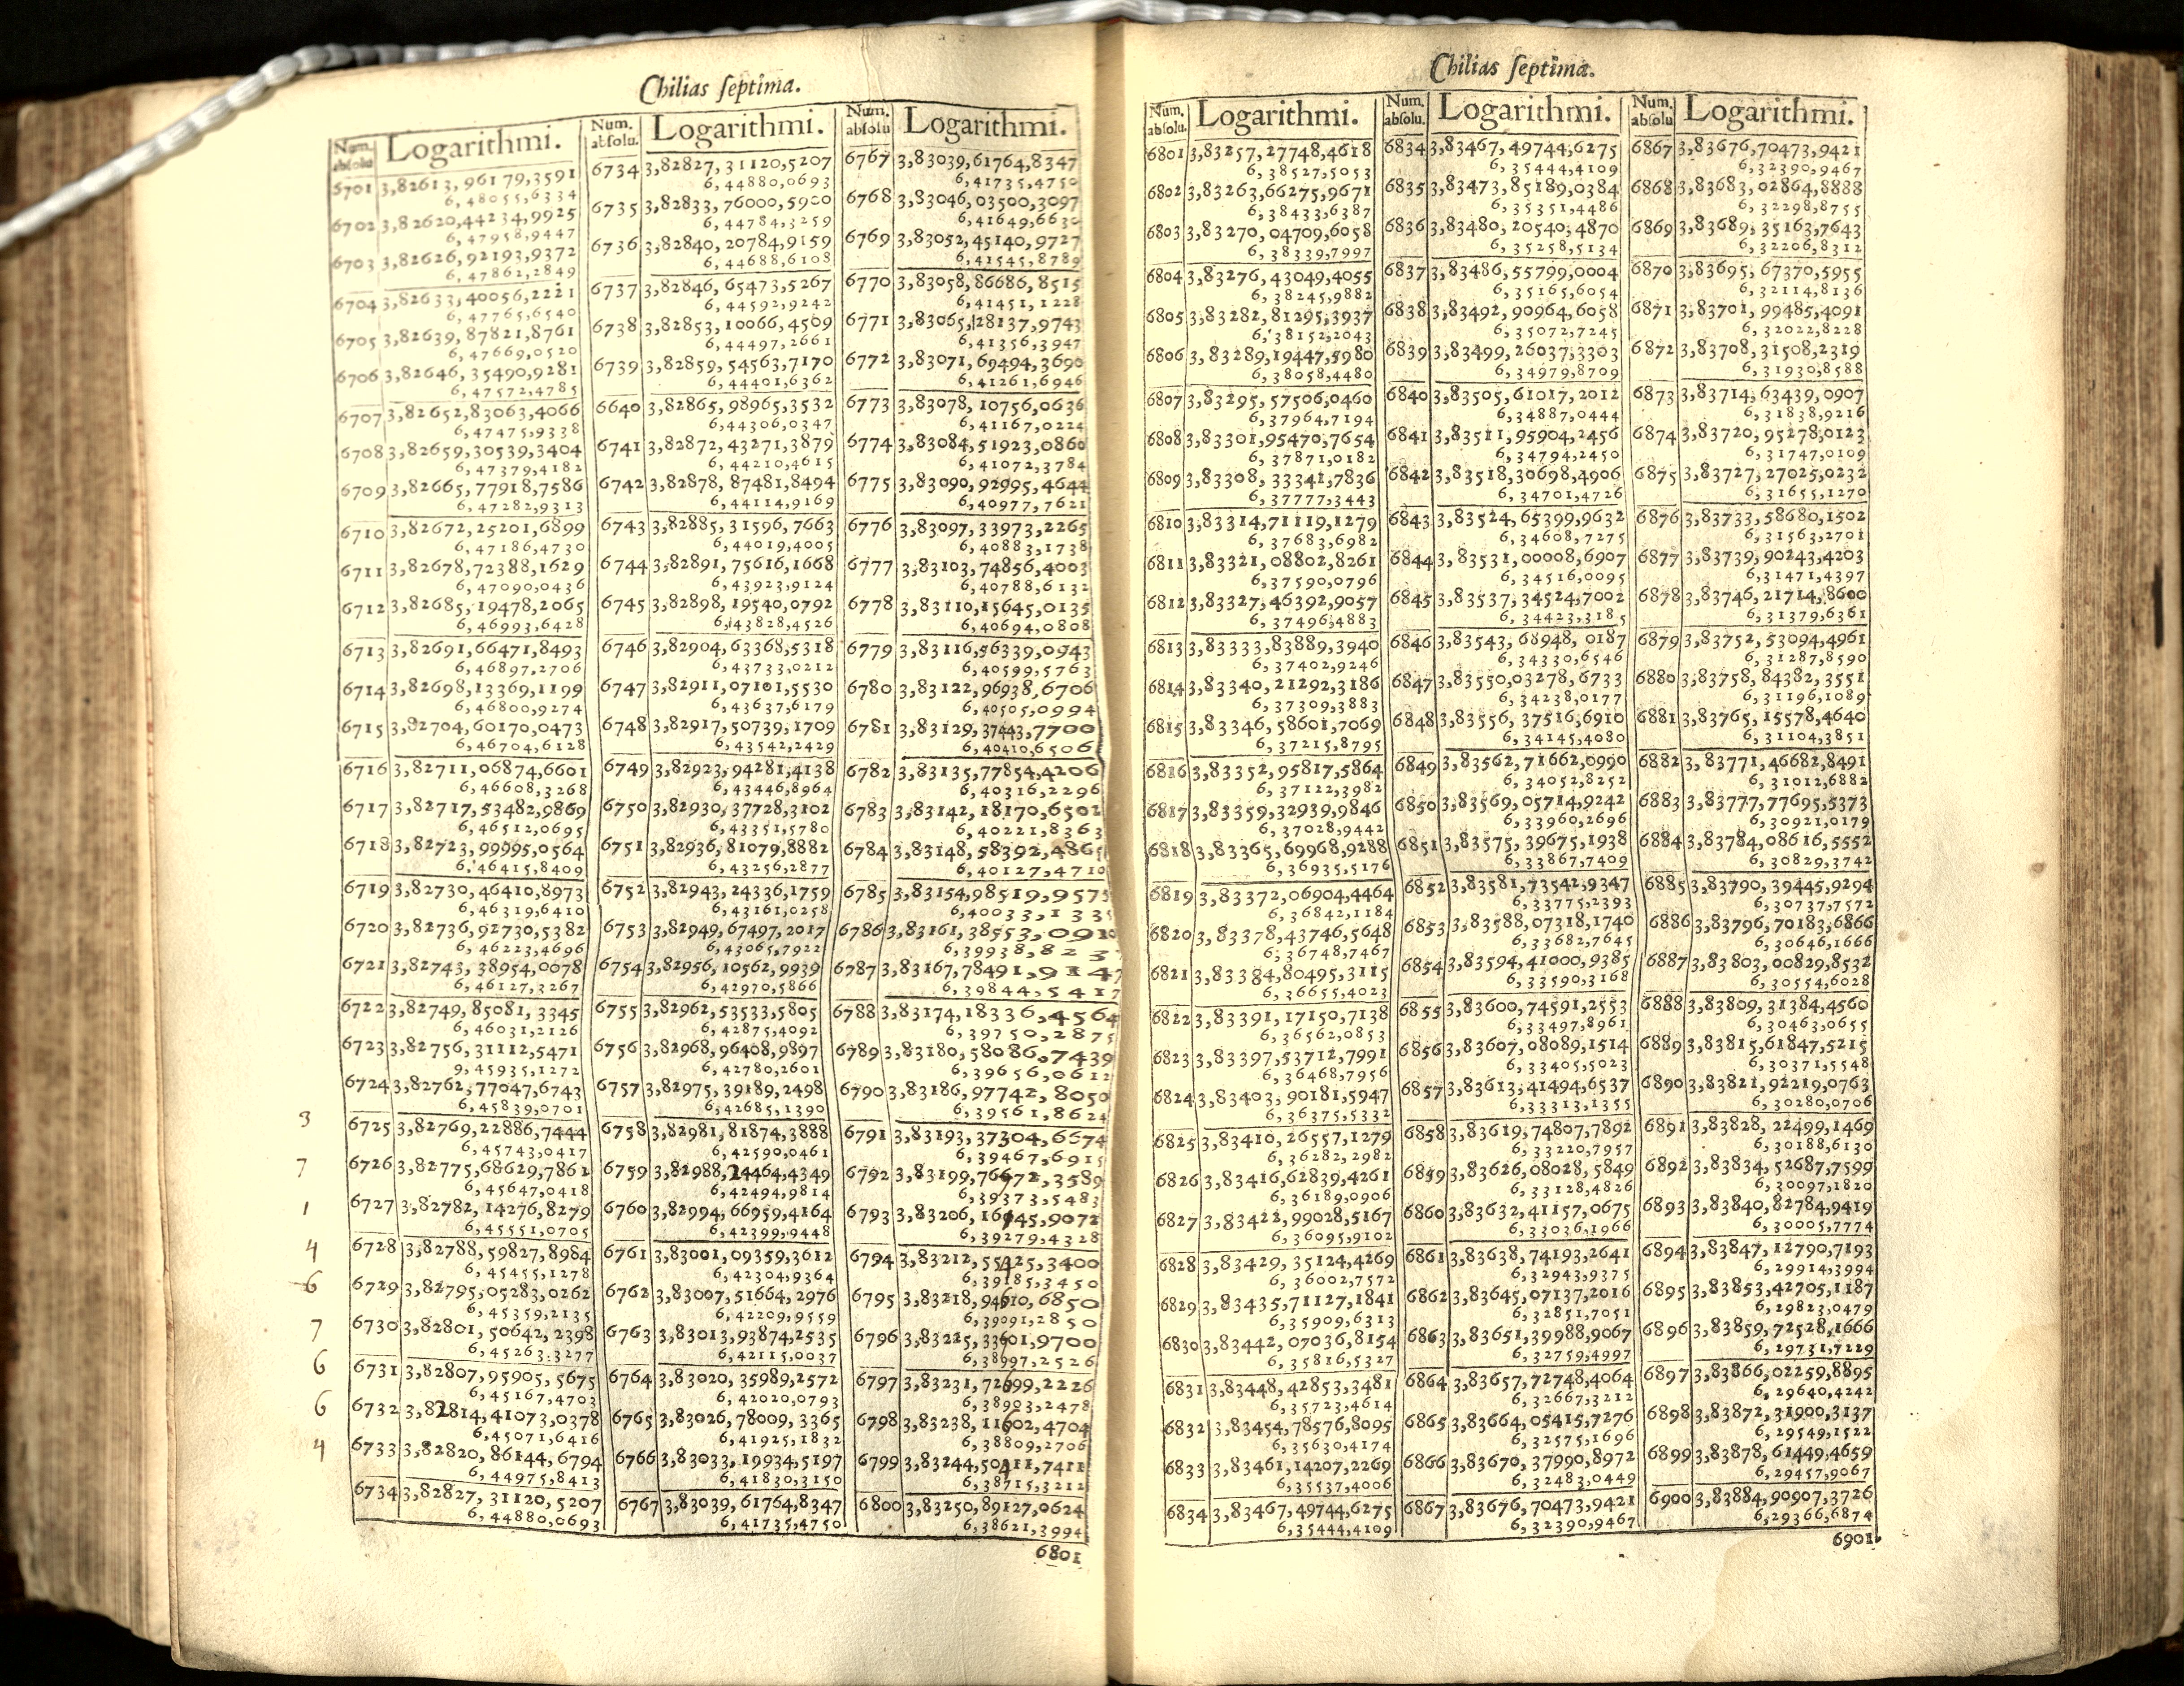 Chilias septima.
Num. absolu Logarithmi.
6701 3,82613,96179,3591
6,48055,6334
6702 3,82620,44234,9925
6,47958,9447
6703 3,82626,92193,9372
6,47862,2849
6704 3,82633,40056,2221
6,47765,6540
6705 3,82639,87821,8761
6,47669,0520
6706 3,82646,35490,9281
6,47572,4785
6707 3,82652,83063,4066
6,47475,9338
6708 3,82659,30539,3404
6,47379,4182
6709 3,82665,77918,7586
6,47282,9313
6710 3,82672,25201,6899
6,47186,4730
6711 3,82678,72388,1629
6,47090,0436
6712 3,82685,19478,2065
6,46993,6428
6713 3,82691,66471,8493
6,46897,2706
6714 3,82698,13369,1199
6,46800,9274
6715 3,82704,60170,0473
6,46704,6128
6716 3,82711,06874,6601
6,46608,3268
6717 3,82717,53482,9869
6,46512,0695
6718 3,82723,99995,0564
6,46415,8409
6719 3,82730,46410,8973
6,46319,6410
6720 3,82736,92730,5382
6,46223,4696
6721 3,82743,38954,0078
6,46127,3267
6722 3,82749,85081,3345
6,46031,2126
6723 3,82756,31112,5471
9,45935,1272
6724 3,82762,77047,6743
6,45839,0701
3
6725 3,82769,22886,7444
6,45743,0417
7
6726 3,82775,68629,7861
6,45647,0418
1
6727 3,82782,14276,8279
6,45551,0705
4
6728 3,82788,59827,8984
6,45455,1278
6
6729 3,82795,05283,0262
6,45359,2135
7
6730 3,82801,50642,2398
6,45263,3277
6
6731 3,82807,95905,5675
6,45167,4703
6
6732 3,82814,41073,0378
6,45071,6416
4
6733 3,82820,86144,6794
6,44975,8413
6734 3,82827,31120,5207
6,44880,0693
Num. absolu. Logarithmi.
6734 3,82827,31120,5207
6,44880,0693
6735 3,82833,76000,5900
6,44784,3259
6736 3,82840,20784,9159
6,44688,6108
6737 3,82846,65473,5267
6,44592,9242
6738 3,82853,10066,4509
6,44497,2661
6739 3,82859,54563,7170
6,44401,6362
6640 3,82865,98965,3532
6,44306,0347
6741 3,82872,43271,3879
6,44210,4615
6742 3,82878,87481,8494
6,44114,9169
6743 3,82885,31596,7663
6,44019,4005
6744 3,82891,75616,1668
6,43923,9124
6745 3,82898,19540,0792
6,43828,4526
6746 3,82904,63368,5318
6,43733,0212
6747 3,82911,07101,5530
6,43637,6179
6748 3,82917,50739,1709
6,43542,2429
6749 3,82923,94281,4138
6,43446,8964
6750 3,82930,37728,3102
6,43351,5780
6751 3,82936,81079,8882
6,43256,2877
6752 3,82943,24336,1759
6,43161,0258
6753 3,82949,67497,2017
6,43065,7922
6754 3,82956,10562,9939
6,42970,5866
6755 3,82962,53533,5805
6,42875,4092
6756 3,82968,96408,9897
6,42780,2601
6757 3,82975,39189,2498
6,42685,1390
6758 3,82981,81874,3888
6,42590,0461
6759 3,82988,24464,4349
6,42494,9814
6760 3,82994,66959,4164
6,42399,9448
6761 3,83001,09359,3612
6,42304,9364
6762 3,83007,51664,2976
6,42209,9559
6763 3,83013,93874,2535
6,42115,0037
6764 3,83020,35989,2572
6,42020,0793
6765 3,83026,78009,3365
6,41925,1832
6766 3,83033,19934,5197
6,41830,3150
6767 3,83039,61764,8347
6,41735,4750
Num. absolu Logarithmi.
6767 3,83039,61764,8347
6,41735,4750
6768 3,83046,03500,3097
6,41649,6630
6769 3,83052,45140,9727
6,41545,8789
6770 3,83058,86686,8515
6,41451,1228
6771 3,83065,28137,9743
6,41356,3947
6772 3,83071,69494,3690
6,41261,6946
6773 3,83078,10756,0636
6,41167,0224
6774 3,83084,51923,0860
6,41072,3784
6775 3,83090,92995,4644
6,40977,7621
6776 3,83097,33973,2265
6,40883,1738
6777 3,83103,74856,4003
6,40788,6132
6778 3,83110,15645,0135
6,40694,0808
6779 3,83116,56339,0943
6,40599,5763
6780 3,83122,96938,6706
6,40505,0994
6781 3,83129,37443,7700
6,40410,6506
6782 3,83135,77854,4206
6,40316,2296
6783 3,83142,18170,6502
6,40221,8363
6784 3,83148,58392,4865
6,40127,4710
6785 3,83154,98519,9575
6,40033,1335
6786 3,83161,38553,0910
6,39938,823
6787 3,83167,78491,9147
6,39844,5417
6788 3,83174,18336,4564
6,39750,2875
6789 3,83180,58086,7439
6,39656,0612
6790 3,83186,97742,8050
6,39561,8624
6791 3,83193,37304,6674
6,39467,6915
6792 3,83199,76772,3589
6,39373,5483
6793 3,83206,16145,9072
6,39279,4328
6794 3,83212,55425,3400
6,39185,3450
6795 3,83218,94610,6850
6,39091,2850
6796 3,83225,33701,9700
6,38997,2526
6797 3,83231,72699,2226
6,38903,2478
6798 3,83238,11602,4704
6,38809,2706
6799 3,83244,50411,7411
6,38715,3212
6800 3,83250,89127,0624
6,38621,3994
6801
Chilias septima.
Num. absolu. Logarithmi.
6801 3,83257,27748,4618
6,38527,5053
6802 3,83263,66275,9671
6,38433,6387
6803 3,83270,04709,6058
6,38339,7997
6804 3,83276,43049,4055
6,38245,9882
6805 3,83282,81295,3937
6,38152,2043
6806 3,83289,19447,5980
6,38058,4480
6807 3,83295,57506,0460
6,37964,7194
6808 3,83301,95470,7654
6,37871,0182
6809 3,83308,33341,7836
6,37777,3443
6810 3,83314,71119,1279
6,37683,6982
6811 3,83321,08802,8261
6,37590,0796
6812 3,83327,46392,9057
6,37496,4883
6813 3,83333,83889,3940
6,37402,9246
6814 3,83340,21292,3186
6,37309,3883
6815 3,83346,58601,7069
6,37215,8795
6816 3,83352,95817,5864
6,37122,3982
6817 3,83359,32939,9846
6,37028,9442
6818 3,83365,69968,9288
6,36935,5176
6819 3,83372,06904,4464
6,36842,1184
6820 3,83378,43746,5648
6,36748,7467
6821 3,83384,80495,3115
6,36655,4023
6822 3,83391,17150,7138
6,36562,0853
6823 3,83397,53712,7991
6,36468,7956
6824 3,83403,90181,5947
6,36375,5332
6825 3,83410,26557,1279
6,36282,2982
6826 3,83416,62839,4261
6,36189,0906
6827 3,83422,99028,5167
6,36095,9102
6828 3,83429,35124,4269
6,36002,7572
6829 3,83435,71127,1841
6,35909,6313
6830 3,83442,07036,8154
6,35816,5327
6831 3,83448,42853,3481
6,35723,4614
6832 3,83454,78576,8095
6,35630,4174
6833 3,83461,14207,2269
6,35537,4006
6834 3,83467,49744,6275
6,35444,4109
Num. absolu. Logarithmi.
6834 3,83467,49744,6275
6,35444,4109
6835 3,83473,85189,0384
6,35351,4486
6836 3,83480,20540,4870
6,35258,5134
6837 3,83486,55799,0004
6,35165,6054
6838 3,83492,90964,6058
6,35072,7245
6839 3,83499,26037,3303
6,34979,8709
6840 3,83505,61017,2012
6,34887,0444
6841 3,83511,95904,2456
6,34794,2450
6842 3,83518,30698,4906
6,34701,4726
6843 3,83524,65399,9632
6,34608,7275
6844 3,83531,00008,6907
6,34516,0095
6845 3,83537,34524,7002
6,34423,3185
6846 3,83543,68948,0187
6,34330,6546
6847 3,83550,03278,6733
6,34238,0177
6848 3,83556,37516,6910
6,34145,4080
6849 3,83562,71662,0990
6,34052,8252
6850 3,83569,05714,9242
6,33960,2696
6851 3,83575,39675,1938
6,33867,7409
6852 3,83581,73542,9347
6,33775,2393
6853 3,83588,07318,1740
6,33682,7645
6854 3,83594,41000,9385
6,33590,3168
6855 3,83600,74591,2553
6,33497,8961
6856 3,83607,08089,1514
6,33405,5023
6857 3,83613,41494,6537
6,33313,1355
6858 3,83619,74807,7892
6,33220,7957
6859 3,83626,08028,5849
6,33128,4826
6860 3,83632,41157,0675
6,33036,1966
6861 3,83638,74193,2641
6,32943,9375
6862 3,83645,07137,2016
6,32851,7051
6863 3,83651,39988,9067
6,32759,4997
6864 3,83657,72748,4064
6,32667,3212
6865 3,83664,05415,7276
6,32575,1696
6866 3,83670,37990,8972
6,32483,0449
6867 3,83676,70473,9421
6,32390,9467
Num. absolu Logarithmi.
6867 3,83676,70473,9421
6,32390,9467
6868 3,83683,02864,8888
6,32298,8755
6869 3,83689,35163,7643
6,32206,8312
6870 3,83695,67370,5955
6,32114,8136
6871 3,83701,99485,4091
6,32022,8228
6872 3,83708,31508,2319
6,31930,8588
6873 3,83714,63439,0907
6,31838,9216
6874 3,83720,95278,0123
6,31747,0109
6875 3,83727,27025,0232
6,31655,1270
6876 3,83733,58680,1502
6,31563,2701
6877 3,83739,90243,4203
6,31471,4397
6878 3,83746,21714,8600
6,31379,6361
6879 3,83752,53094,4961
6,31287,8590
6880 3,83758,84382,3551
6,31196,1089
6881 3,83765,15578,4640
6,31104,3851
6882 3,83771,46682,8491
6,31012,6882
6883 3,83777,77695,5373
6,30921,0179
6884 3,83784,08616,5552
6,30829,3742
6885 3,83790,39445,9294
6,30737,7572
6886 3,83796,70183,6866
6,30646,1666
6887 3,83803,00829,8532
6,30554,6028
6888 3,83809,31384,4560
6,30463,0655
6889 3,83815,61847,5215
6,30371,5548
6890 3,83821,92219,0763
6,30280,0706
6891 3,83828,22499,1469
6,30188,6130
6892 3,83834,52687,7599
6,30097,1820
6893 3,83840,82784,9419
6,30005,7774
6894 3,83847,12790,7193
6,29914,3994
6895 3,83853,42705,1187
6,29823,0479
6896 3,83859,72528,1666
6,29731,7229
6897 3,83866,02259,8895
6,29640,4242
6898 3,83872,31900,3137
6,29549,1522
6899 3,83878,61449,4659
6,29457,9067
6900 3,83884,90907,3726
6,29366,6874
6901